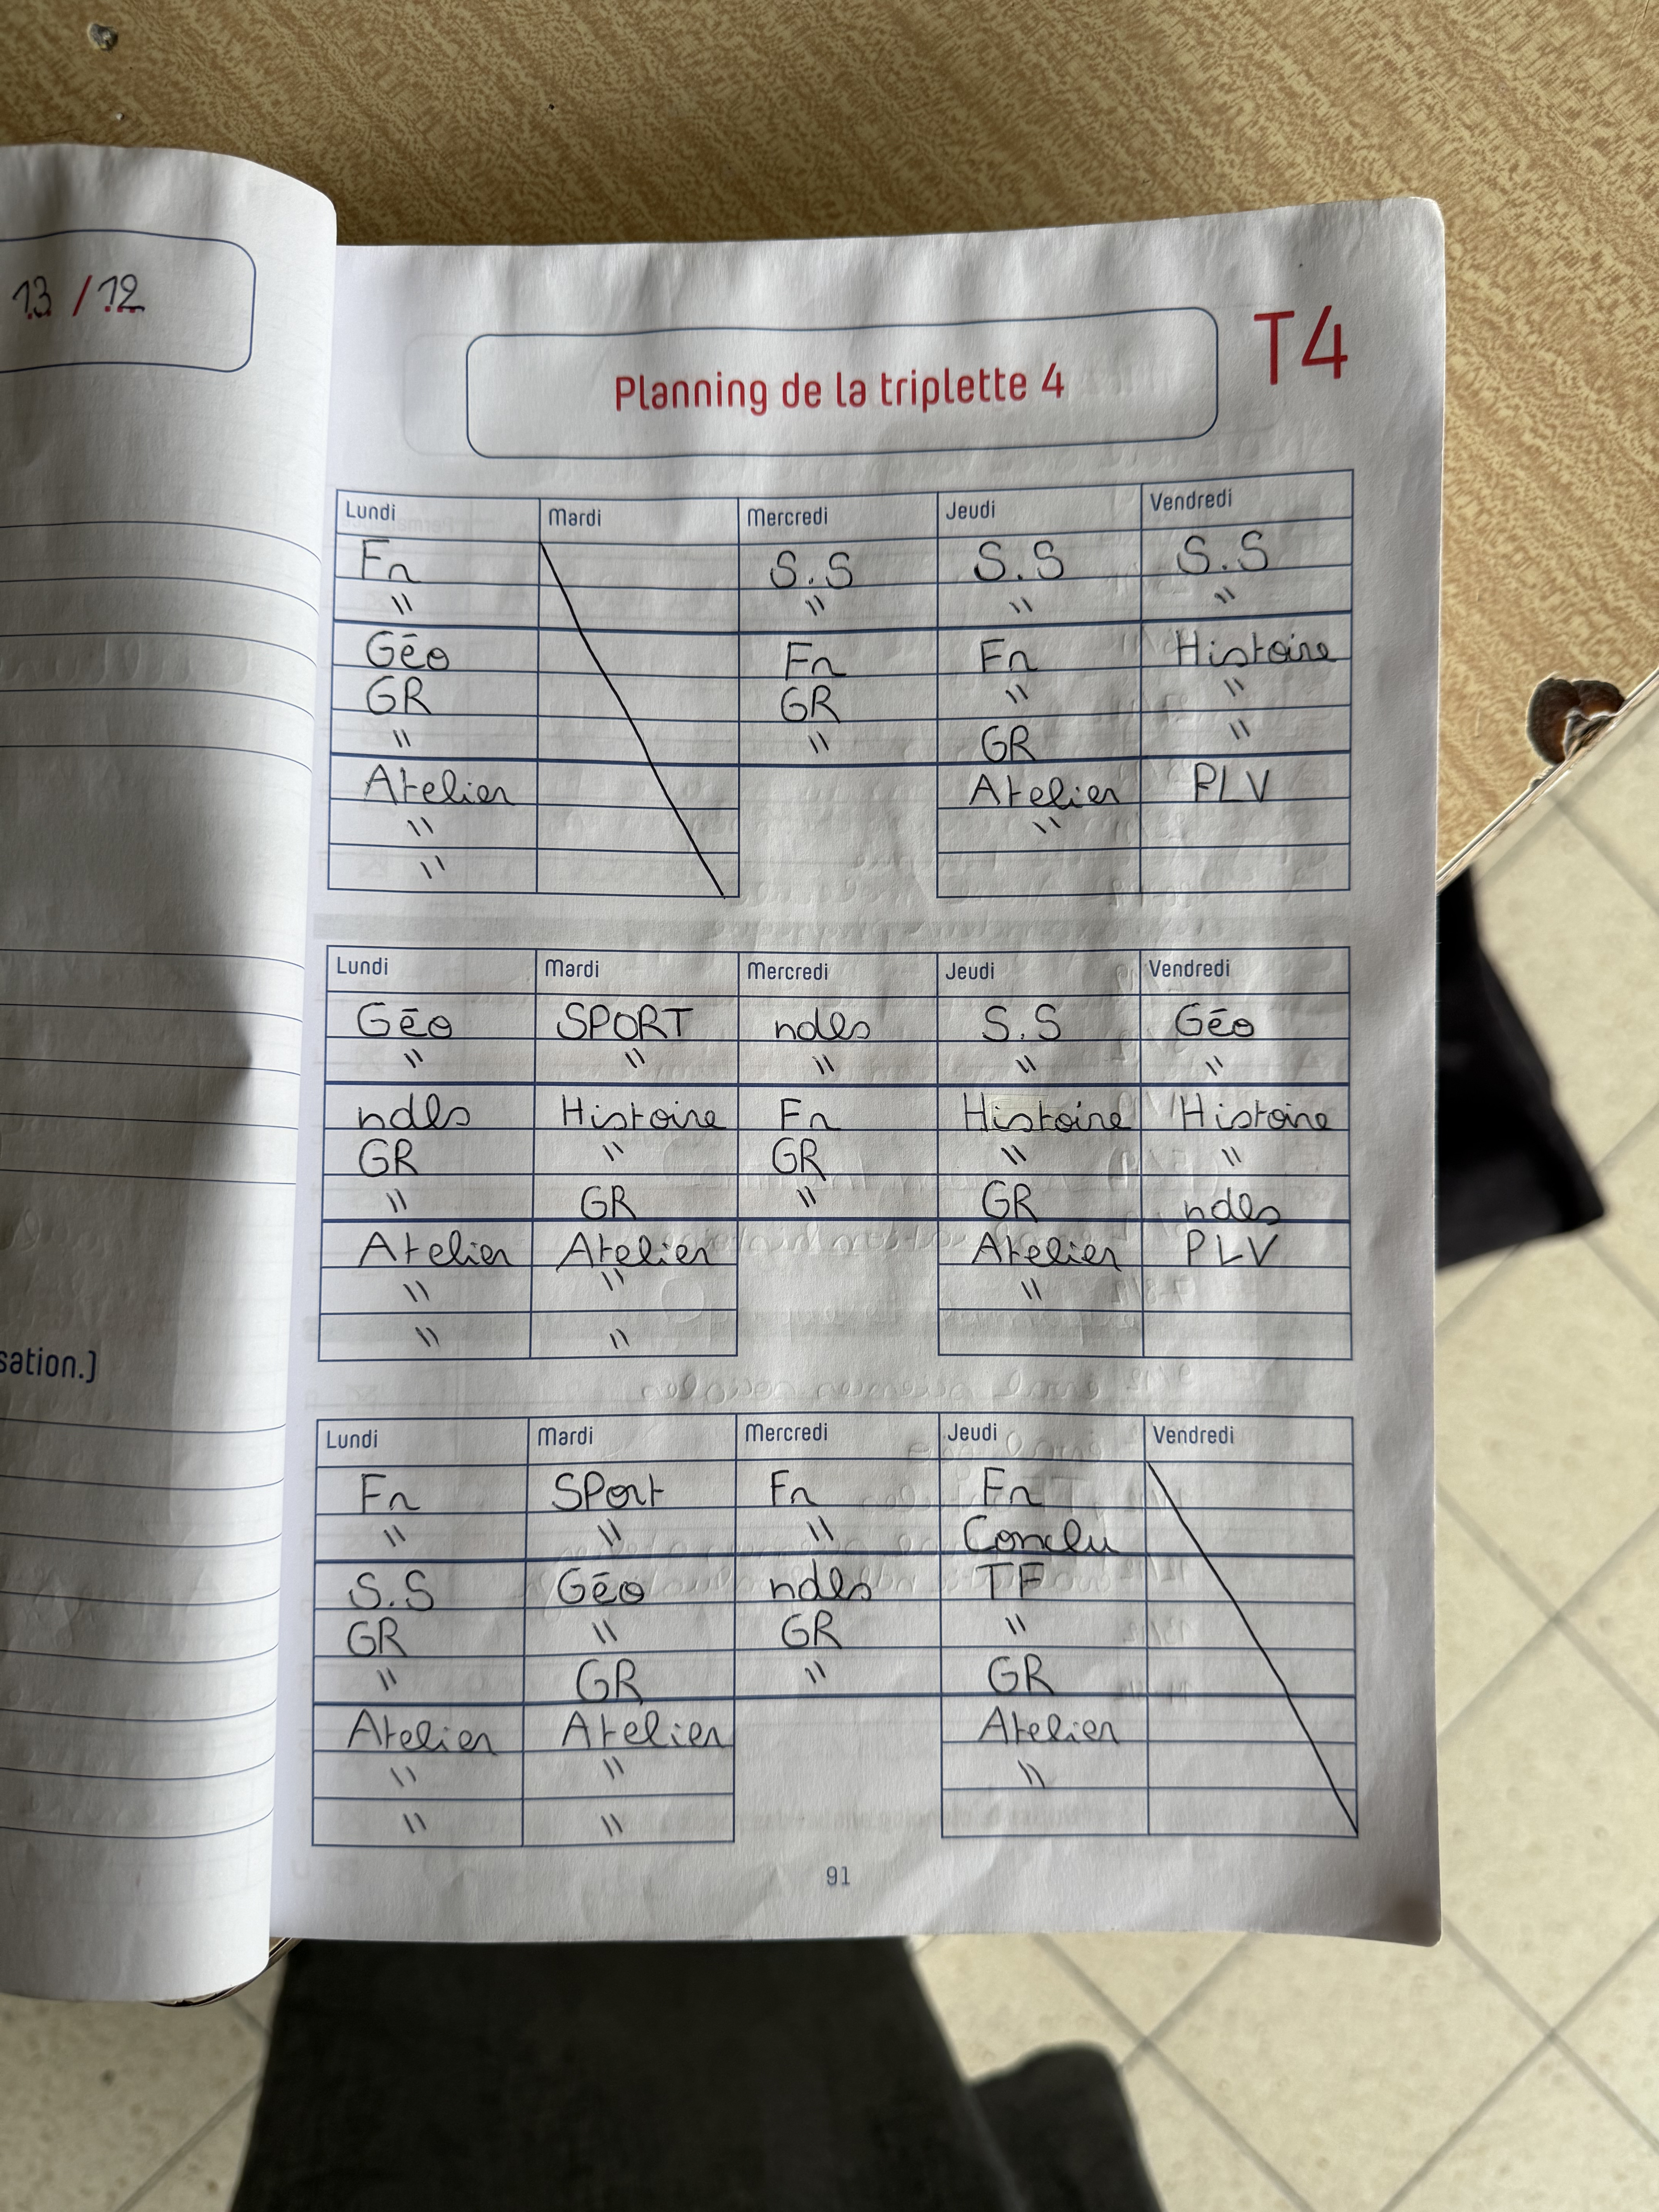 13 / 12
sation.)
T4
Planning de la triplette 4
Lundi Mardi Mercredi Jeudi Vendredi
Fr S.S S.S S.S
" " " "
Géo Fr Fr Histoire
GR GR " "
" " GR "
Atelier Atelier PLV
" "
"
Lundi Mardi Mercredi Jeudi Vendredi
Géo SPORT ndls S.S Géo
" " " " "
ndls Histoire Fr Histoire Histoire
GR " GR " "
" GR " GR ndls
Atelier Atelier Atelier PLV
" " "
" "
Lundi Mardi Mercredi Jeudi Vendredi
Fr SPort Fr Fr
" " " Conclu
S.S Géo ndls TF
GR " GR "
" GR " GR
Atelier Atelier Atelier
" " "
" "
91